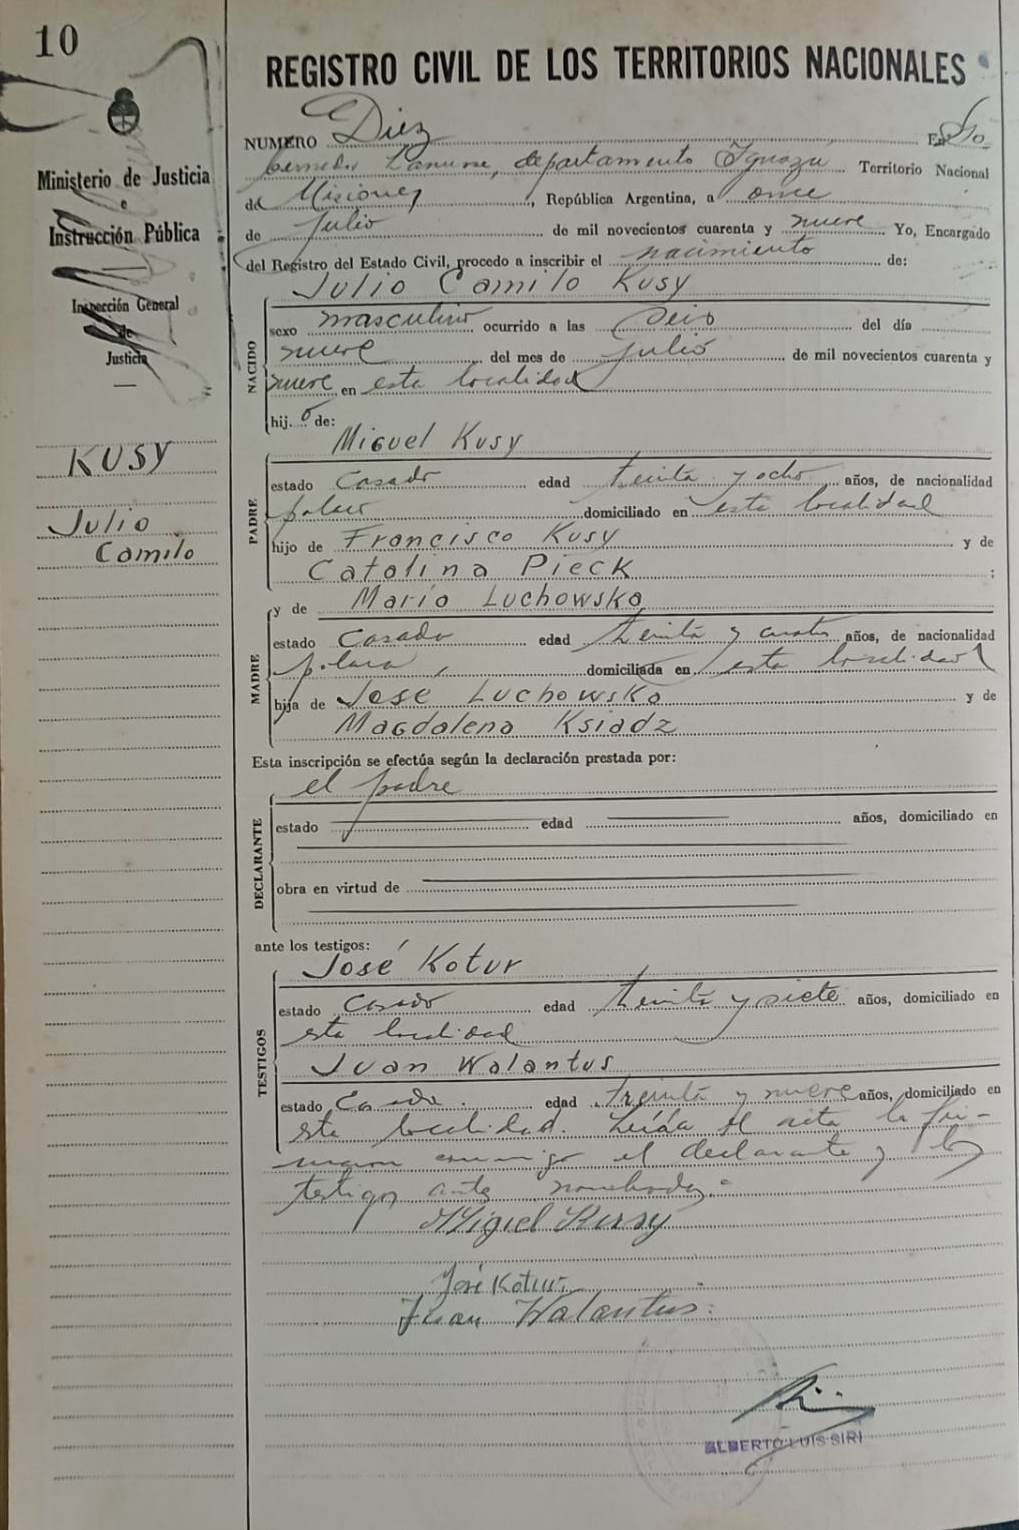 10
REGISTRO CIVIL DE LOS TERRITORIOS NACIONALES
Ministerio de Justicia
e
Instrucción Pública
Inspección General
de
Justicia
KUSY
Julio
Camilo
NUMERO Diez En
departamento Iguazú Territorio Nacional
de Misiones, República Argentina, a once
de Julio de mil novecientos cuarenta y nueve Yo, Encargado
del Registro del Estado Civil, procedo a inscribir el nacimiento de:
Julio Camilo Kusy
NACIDO
sexo masculino ocurrido a las seis del día
nueve del mes de julio de mil novecientos cuarenta y
nueve en esta localidad
hijo de:
Miguel Kusy
PADRE
estado Casado edad treinta y ocho años, de nacionalidad
polaco domiciliado en esta localidad
hijo de Francisco Kusy y de
Catalina Pieck ;
y de Maria Luchowska
MADRE
estado Casada edad treinta y cuatro años, de nacionalidad
polaca, domiciliada en esta localidad
hija de José Luchowska y de
Magdalena Ksiadz
Esta inscripción se efectúa según la declaración prestada por:
el padre
DECLARANTE
estado edad años, domiciliado en
obra en virtud de
ante los testigos:
José Kotur
TESTIGOS
estado Casado edad treinta y siete años, domiciliado en
esta localidad
Juan Walantus
estado Casado. edad treinta y nueve años, domiciliado en
esta localidad. Leída el acta la fir-
maron conmigo el declarante y los
testigos antes nombrados.
Miguel Kusy
José Kotur
Juan Walantus
ALBERTO LUIS SIRI